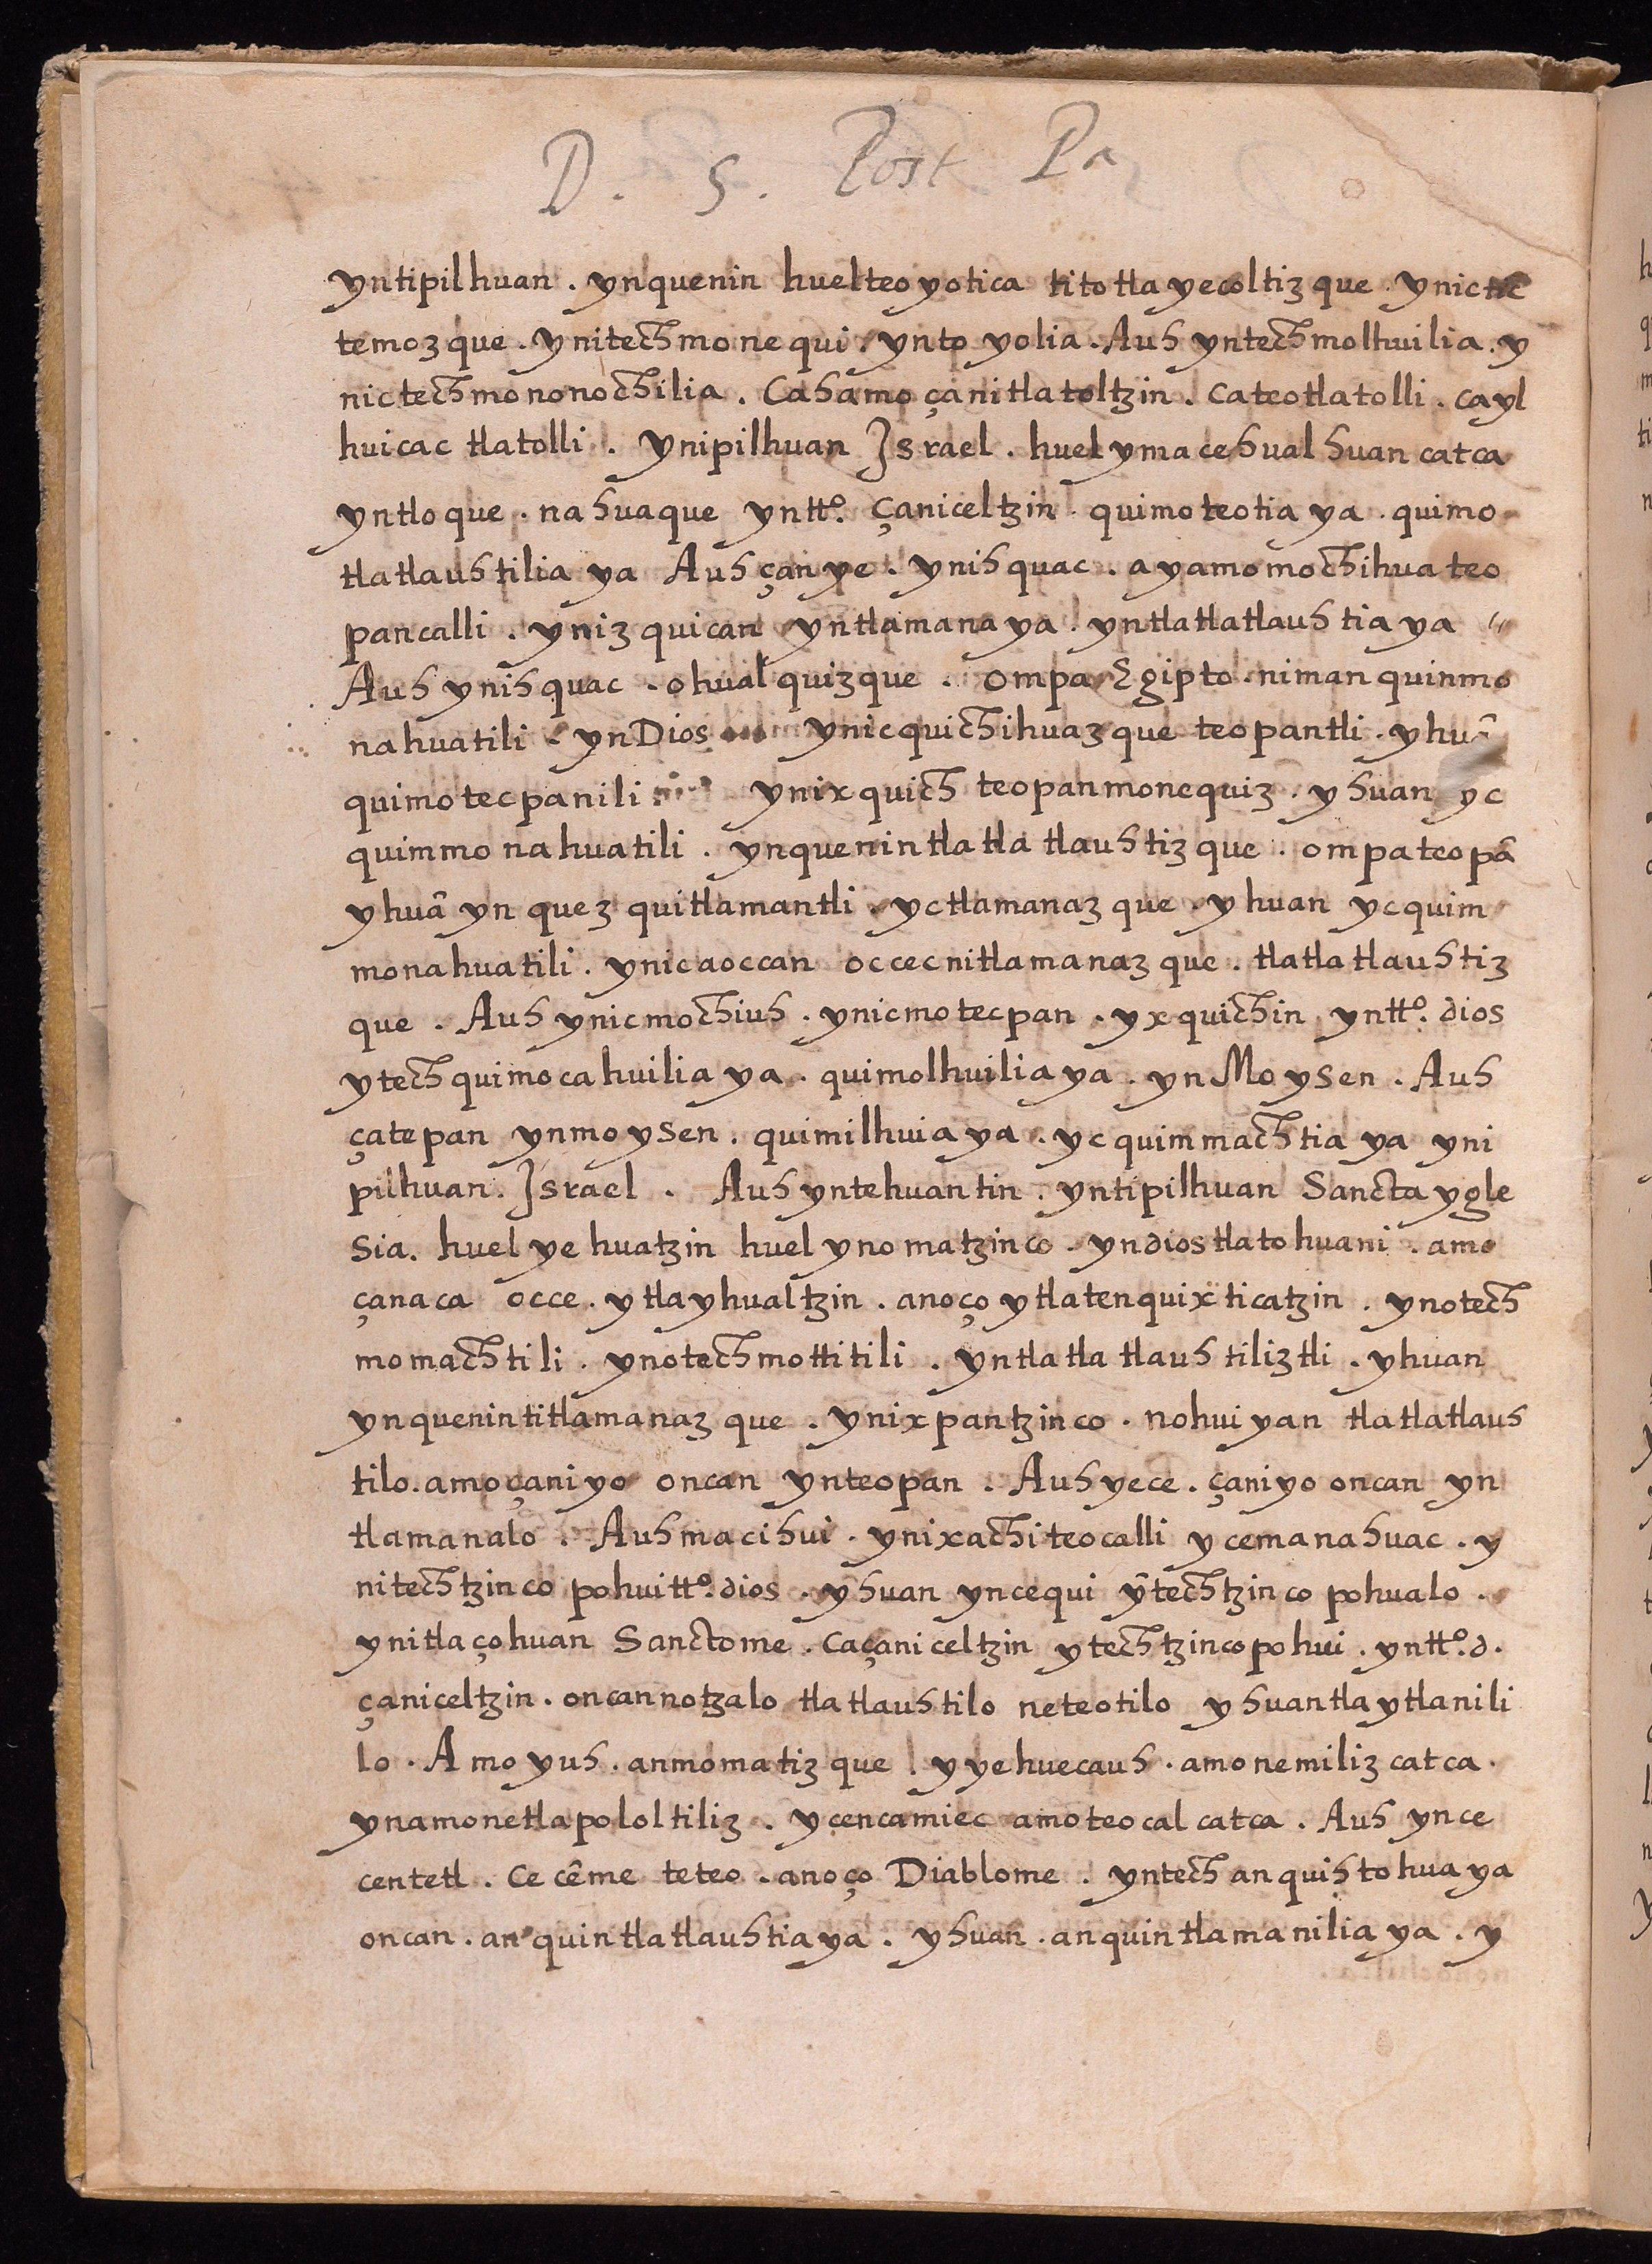 D. 5. Post Pa
yntipilhuan . ynquenin huelteoyotica titotlayecoltizque . ynictic
temozque . ynitechmonequi . ynto yolia . Auh yntechmolhuilia . y
nictechmononochilia . Cahamo çanitlatoltzin . Cateotlatolli . cayl
huicac tlatolli . Ynipilhuan Israel . huel ymacehualhuan catca
yntloque . nahuaque yntt.º Çaniceltzin quimoteotiaya . quimo
tlatlauhtilia ya Auh çanye . ynihquac . ayamomochihua teo
pancalli . ynizquican yntlamanaya . yntlatlatlauhtiaya
Auh ynihquac . ohualquizque . ompa Egipto . niman quinmo
nahuatili . ynDios ynicquichihuazque teopantli . yhuã
quimotecpanili ynixquich teopanmonequiz . yhuan yc
quimmonahuatili . ynquenintlatlatlauhtizque . ompateopã
yhuã yn quezquitlamantli . yctlamanazque . yhuan ycquim
monahuatili . ynicaoccan occecnitlamanazque . tlatlatlauhtiz
que . Auh ynicmochiuh . ynicmotecpan . yxquichin yntt.º dios
ytechquimocahuiliaya . quimolhuiliaya . yn Moysen . Auh
çatepan ynmoysen . quimilhuiaya . yc quimmachtia ya yni
pilhuan . Israel . Auh yntehuantin . yntipilhuan Sancta ygle
sia . huel yehuatzin huel ynomatzinco . yndiostlatohuani . amo
çanaca occe . ytlayhualtzin . anoço ytlatenquixticatzin . ynotech
momachtili . ynotechmottitili . yntlatlatlauhtiliztli . yhuan
ynquenintitlamanazque . ynixpantzinco . nohuiyan tlatlatlauh
tilo . amoçaniyo oncan ynteopan . Auh yece . çaniyo oncan yn
tlamanalo . Auh macihui . ynixachiteocalli ycemanahuac . y
nitechtzinco pohuitt.º dios . yhuan yncequi ỹtechtzinco pohualo .
ynitlaçohuan Sanctome . caçaniceltzin ytechtzincopohui . yntt.º d .
çaniceltzin . oncannotzalo tlatlauhtilo neteotilo yhuantlaytlanili
lo . Amo yuh . anmomatizque . yyehuecauh . amonemiliz catca .
ynamonetlapololtiliz . ycencamiec amoteocal catca . Auh ynce
centetl . ce cẽme teteo . anoço Diablome . yntech anquihtohuaya
oncan . anquintlatlauhtiaya . yhuan . anquintlamaniliaya . y